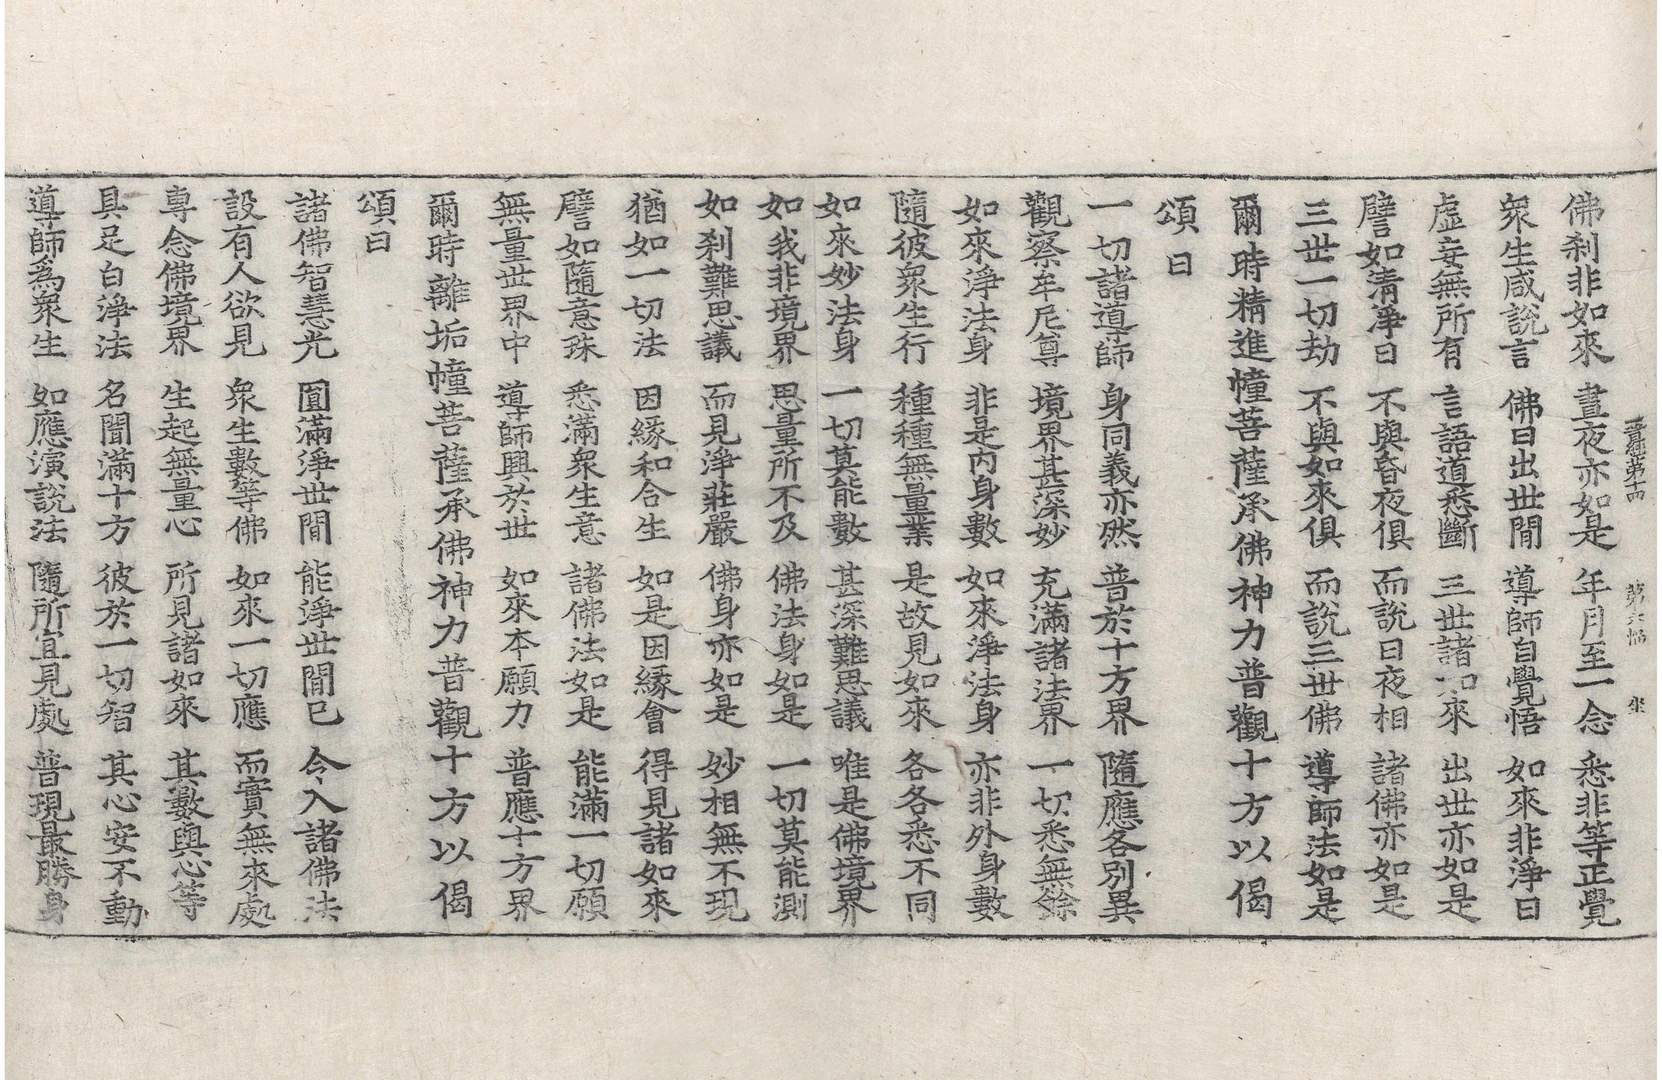 晋經第十四 第六幅 坐
佛刹非如來 晝夜亦如是 年月至一念 悉非等正覺
衆生咸說言 佛日出世閒 導師自覺悟 如來非淨日
虛妄無所有 言語道悉斷 三世諸如來 出世亦如是
譬如淸淨日 不與昏夜俱 而說日夜相 諸佛亦如是
三世一切劫 不與如來俱 而說三世佛 導師法如是
爾時精進幢菩薩承佛神力普觀十方以偈
頌曰
一切諸導師 身同義亦然 普於十方界 隨應各別異
觀察牟尼尊 境界甚深妙 充滿諸法界 一切悉無餘
如來淨法身 非是內身數 如來淨法身 亦非外身數
隨彼衆生行 種種無量業 是故見如來 各各悉不同
如來妙法身 一切莫能數 甚深難思議 唯是佛境界
如我非境界 思量所不及 佛法身如是 一切莫能測
如刹難思議 而見淨莊嚴 佛身亦如是 妙相無不現
猶如一切法 因緣和合生 如是因緣會 得見諸如來
譬如隨意珠 悉滿衆生意 諸佛法如是 能滿一切願
無量世界中 導師興於世 如來本願力 普應十方界
爾時離垢幢菩薩承佛神力普觀十方以偈
頌曰
諸佛智慧光 圓滿淨世閒 能淨世閒已 令入諸佛法
設有人欲見 衆生數等佛 如來一切應 而實無來處
專念佛境界 生起無量心 所見諸如來 其數與心等
具足白淨法 名聞滿十方 彼於一切智 其心安不動
導師爲衆生 如應演說法 隨所宜見處 普現最勝身